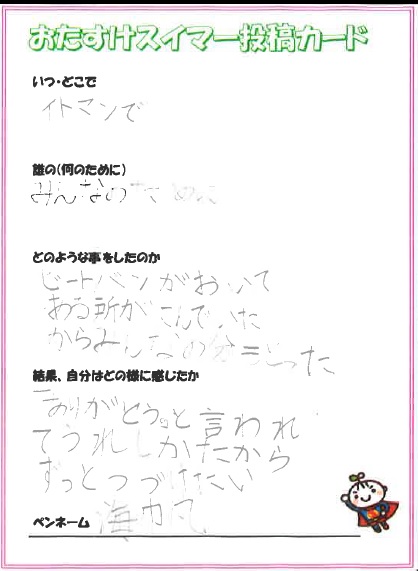 おたすけスイマー投稿カード
いつ・どこで
イトマンで
誰の(何のために)
みんなのために
どのような事をしたのか
ビートバンがおいて
ある所がこんでいた
からみんなの分をとった
結果、自分はどの様に感じたか
「ありがとう。」と言われ
てうれしかたから
ずっとつづけたい
ペンネーム